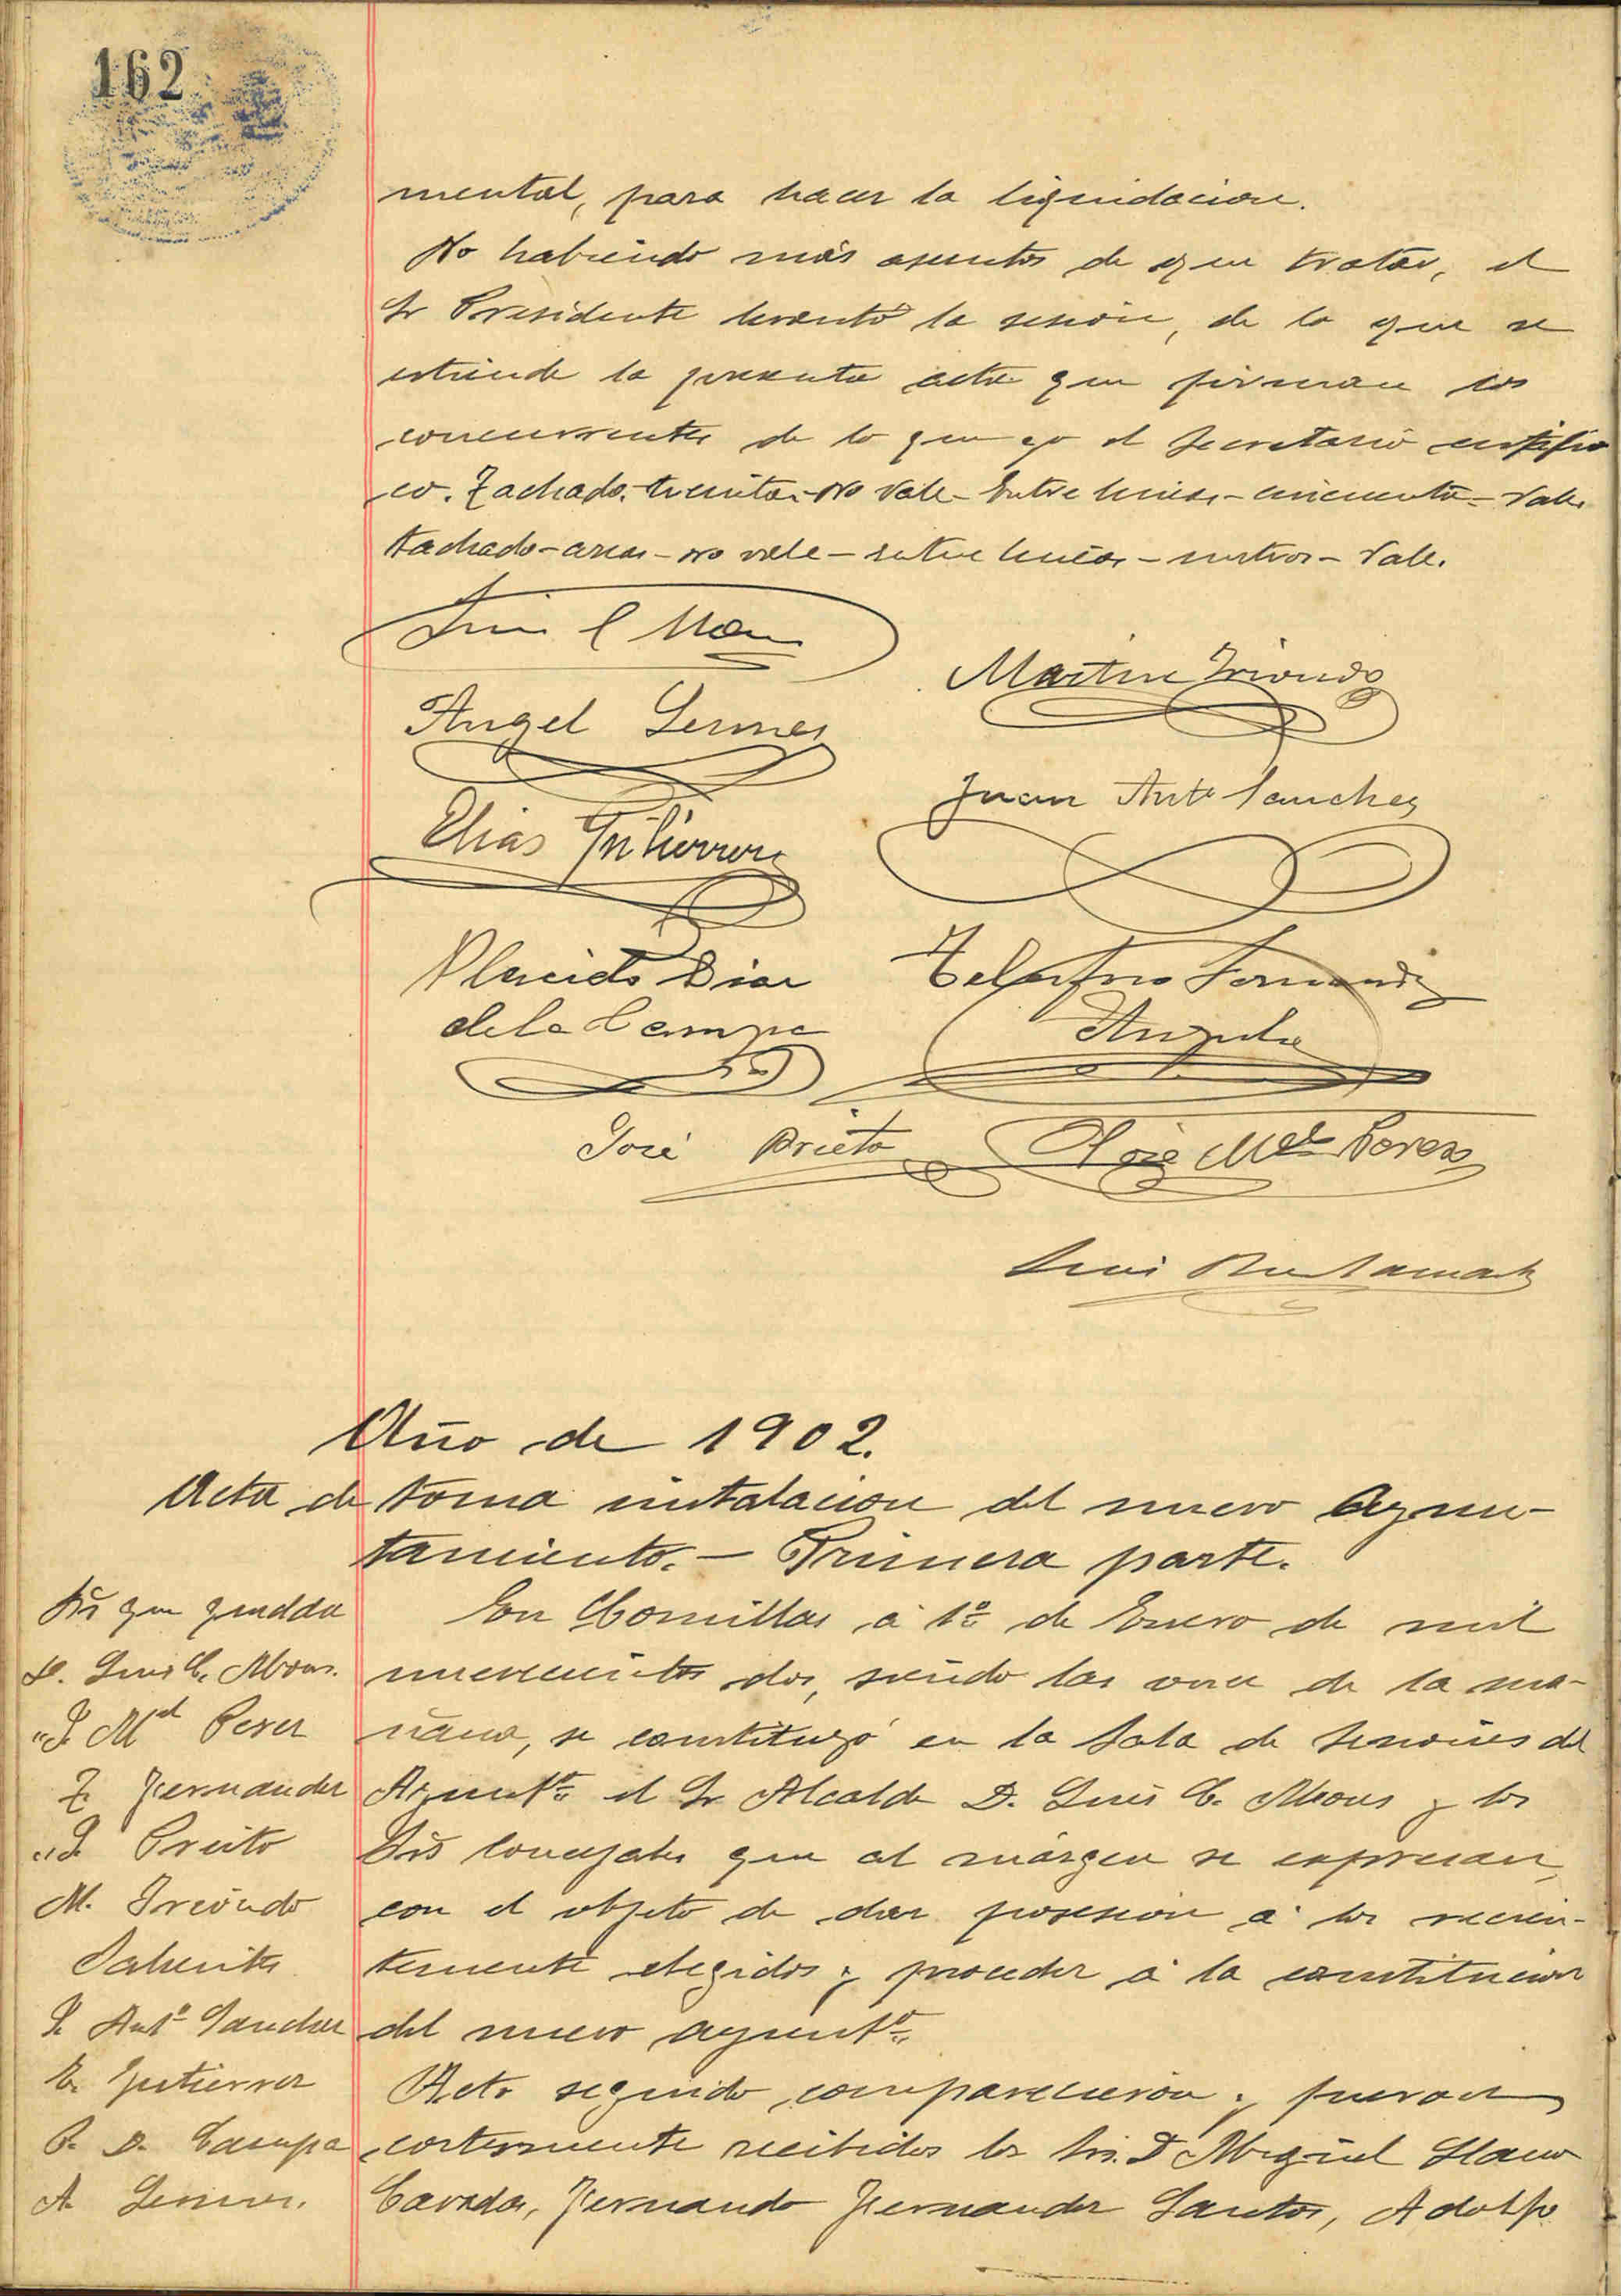 162
mental, para hacer la liquidacion.
No habiendo más asuntos de que tratar, el
Sr Presidente levantó la sesión, de lo que se
estiende la presente acta que firman los
concurrentes de lo que yo el Secretario certifi
co. Tachado. treinta. No vale - Entre lineas - cincuenta - Vale
tachado - areas - no vale - entre lineas - metros - Vale.
Luis C Mons
Martin Iriondo
Angel Lermes
Juan Antº Sanchez
Elias Gutierrez
Placido Diaz
de la Campa
Telesforo Fernandez
José Prieto
José Mel Perez
Luis Bustamante
Año de 1902.
Acta de toma instalacion del nuevo Ayun-
tamiento. - Primera parte.
Srs que quedda
D. Luis C. Mons.
" J. Mel Perez
T. Fernandez
" J. Prieto
M. Iriondo
Salientes
J. Antº Sanchez
E. Gutierrez
P. D. Campa
A. Lermes.
En Comillas á 1º de Enero de mil
novecientos dos, siendo las once de la ma-
ñana, se constituyó en la Sala de Sesiones del
Ayuntº el Sr Alcalde D. Luis C. Mons y los
Srs Concejales que al márgen se expresan,
con el objeto de dar posesión á los recien-
temente elegidos y proceder á la constitucion
del nuevo ayuntº
Acto seguido comparecieron y fueron
cortesmente recibidos los Srs. D Miguel Llano
Cavada, Fernando Fernandez Santos, Adolfo